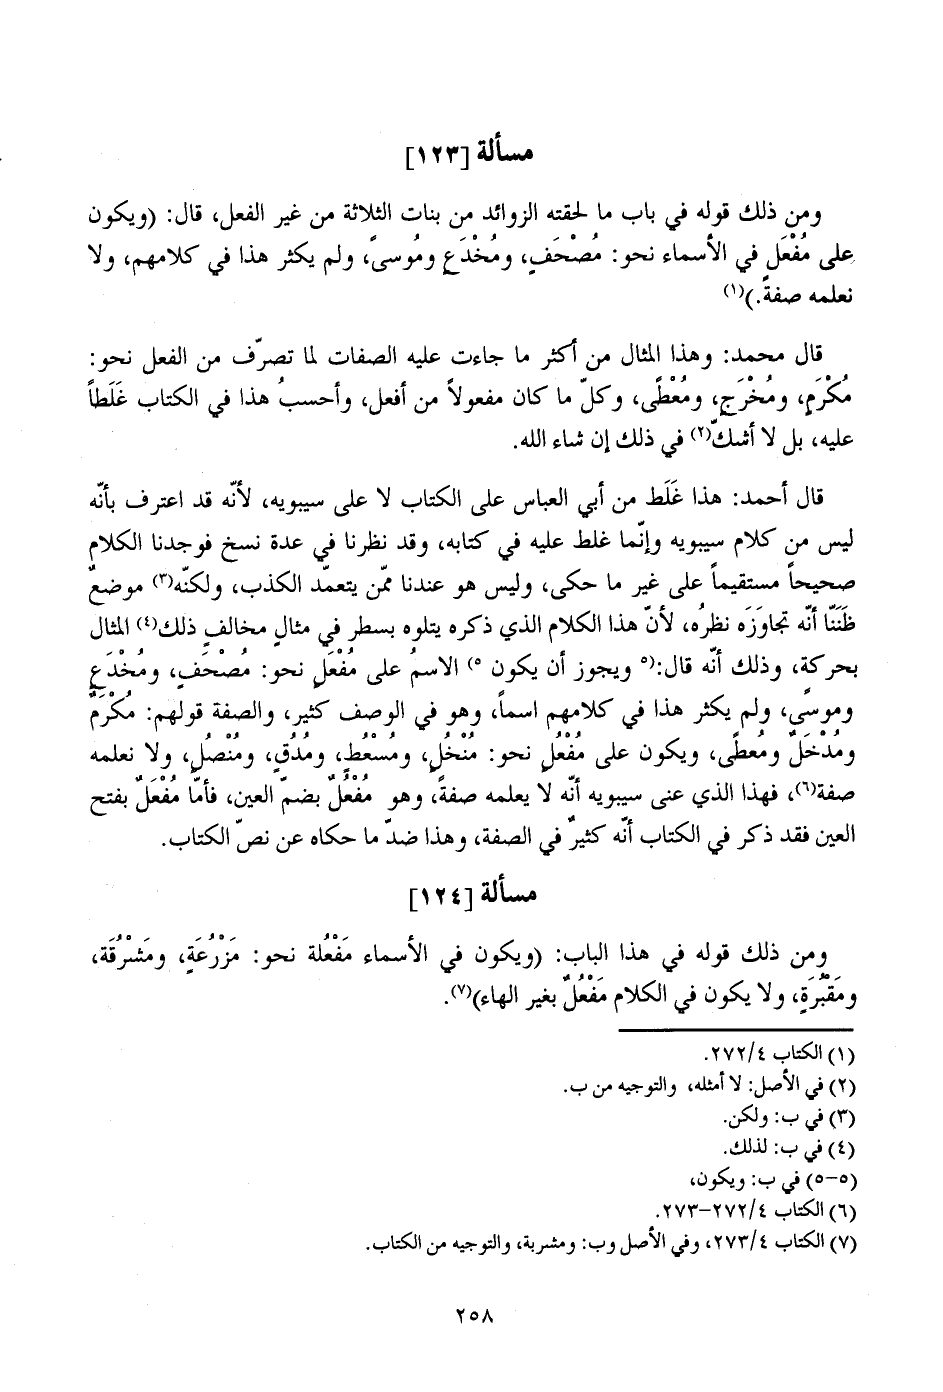 مسألة [١٢٣]
ومن ذلك قوله في باب ما لحقته الزوائد من بنات الثلاثة من غير الفعل، قال: (ويكون
على مُفْعَلٍ في الأسماء نحو: مُصْحَفٍ، ومُخْدَعٍ ومُوسىً، ولم يكثر هذا في كلامهم، ولا
نعلمه صفةً.)(١)
قال محمد: وهذا المثال من أكثر ما جاءت عليه الصفات لما تصرّف من الفعل نحو:
مُكْرَمٍ، ومُخْرَجٍ، ومُعْطًى، وكلّ ما كان مفعولاً من أفعل، وأحسبُ هذا في الكتاب غَلَطاً
عليه، بل لا أشكّ(٢) في ذلك إن شاء الله.
قال أحمد: هذا غَلَط من أبي العباس على الكتاب لا على سيبويه، لأنّه قد اعترف بأنّه
ليس من كلام سيبويه وإنّما غلط عليه في كتابه، وقد نظرنا في عدة نسخ فوجدنا الكلام
صحيحاً مستقيماً على غير ما حكى، وليس هو عندنا ممّن يتعمّد الكذب، ولكنّه(٣) موضعٌ
ظَنَنّا أنّه تجاوَزَه نظرُه، لأنّ هذا الكلام الذي ذكره يتلوه بسطر في مثالٍ مخالفٍ ذلك(٤) المثال
بحركة، وذلك أنّه قال:(٥ ويجوز أن يكون ٥) الاسمُ على مُفْعَلٍ نحو: مُصْحَفٍ، ومُخْدَعٍ
وموسًى، ولم يكثر هذا في كلامهم اسماً، وهو في الوصف كثير، والصفة قولهم: مُكْرَمٌ
ومُدْخَلٌ ومُعطًى، ويكون على مُفْعُلٍ نحو: مُنْخُلٍ، ومُسْعُطٍ، ومُدُقٍ، ومُنْصُلٍ، ولا نعلمه
صفة(٦)، فهذا الذي عنى سيبويه أنّه لا يعلمه صفةً، وهو مُفْعُلٌ بضمّ العين، فأمّا مُفْعَلٌ بفتح
العين فقد ذكر في الكتاب أنّه كثيرٌ في الصفة، وهذا ضدّ ما حكاه عن نصّ الكتاب.
مسألة [١٢٤]
ومن ذلك قوله في هذا الباب: (ويكون في الأسماء مَفْعُلة نحو: مَزْرُعَةٍ، ومَشْرُقَة،
ومَقْبُرَةٍ، ولا يكون في الكلام مَفْعُلٌ بغير الهاء)(٧).
(١) الكتاب ٢٧٢/٤.
(٢) في الأصل: لا أمثله، والتوجيه من ب.
(٣) في ب: ولكن.
(٤) في ب: لذلك.
(٥-٥) في ب: ويكون،
(٦) الكتاب ٢٧٢/٤-٢٧٣.
(٧) الكتاب ٢٧٣/٤، وفي الأصل وب: ومشربة، والتوجيه من الكتاب.
٢٥٨